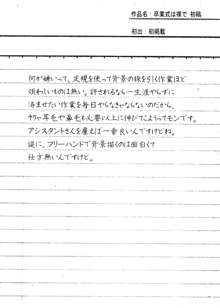 作品名：卒業式は裸で 初稿
初出：初掲載
何が嫌いって、定規を使って背景の線を引く作業ほど
煩わしいものは無い。許されるなら一生涯やらずに
済ませたい作業を毎日やらなきゃならないのだから、
そりゃ耳毛や鼻毛も必要以上に伸びてこようってモンです。
アシスタントさんを雇えば一番良いんですけどね。
逆に、フリーハンドで背景描くのは面白くて
仕方無いんですけど。